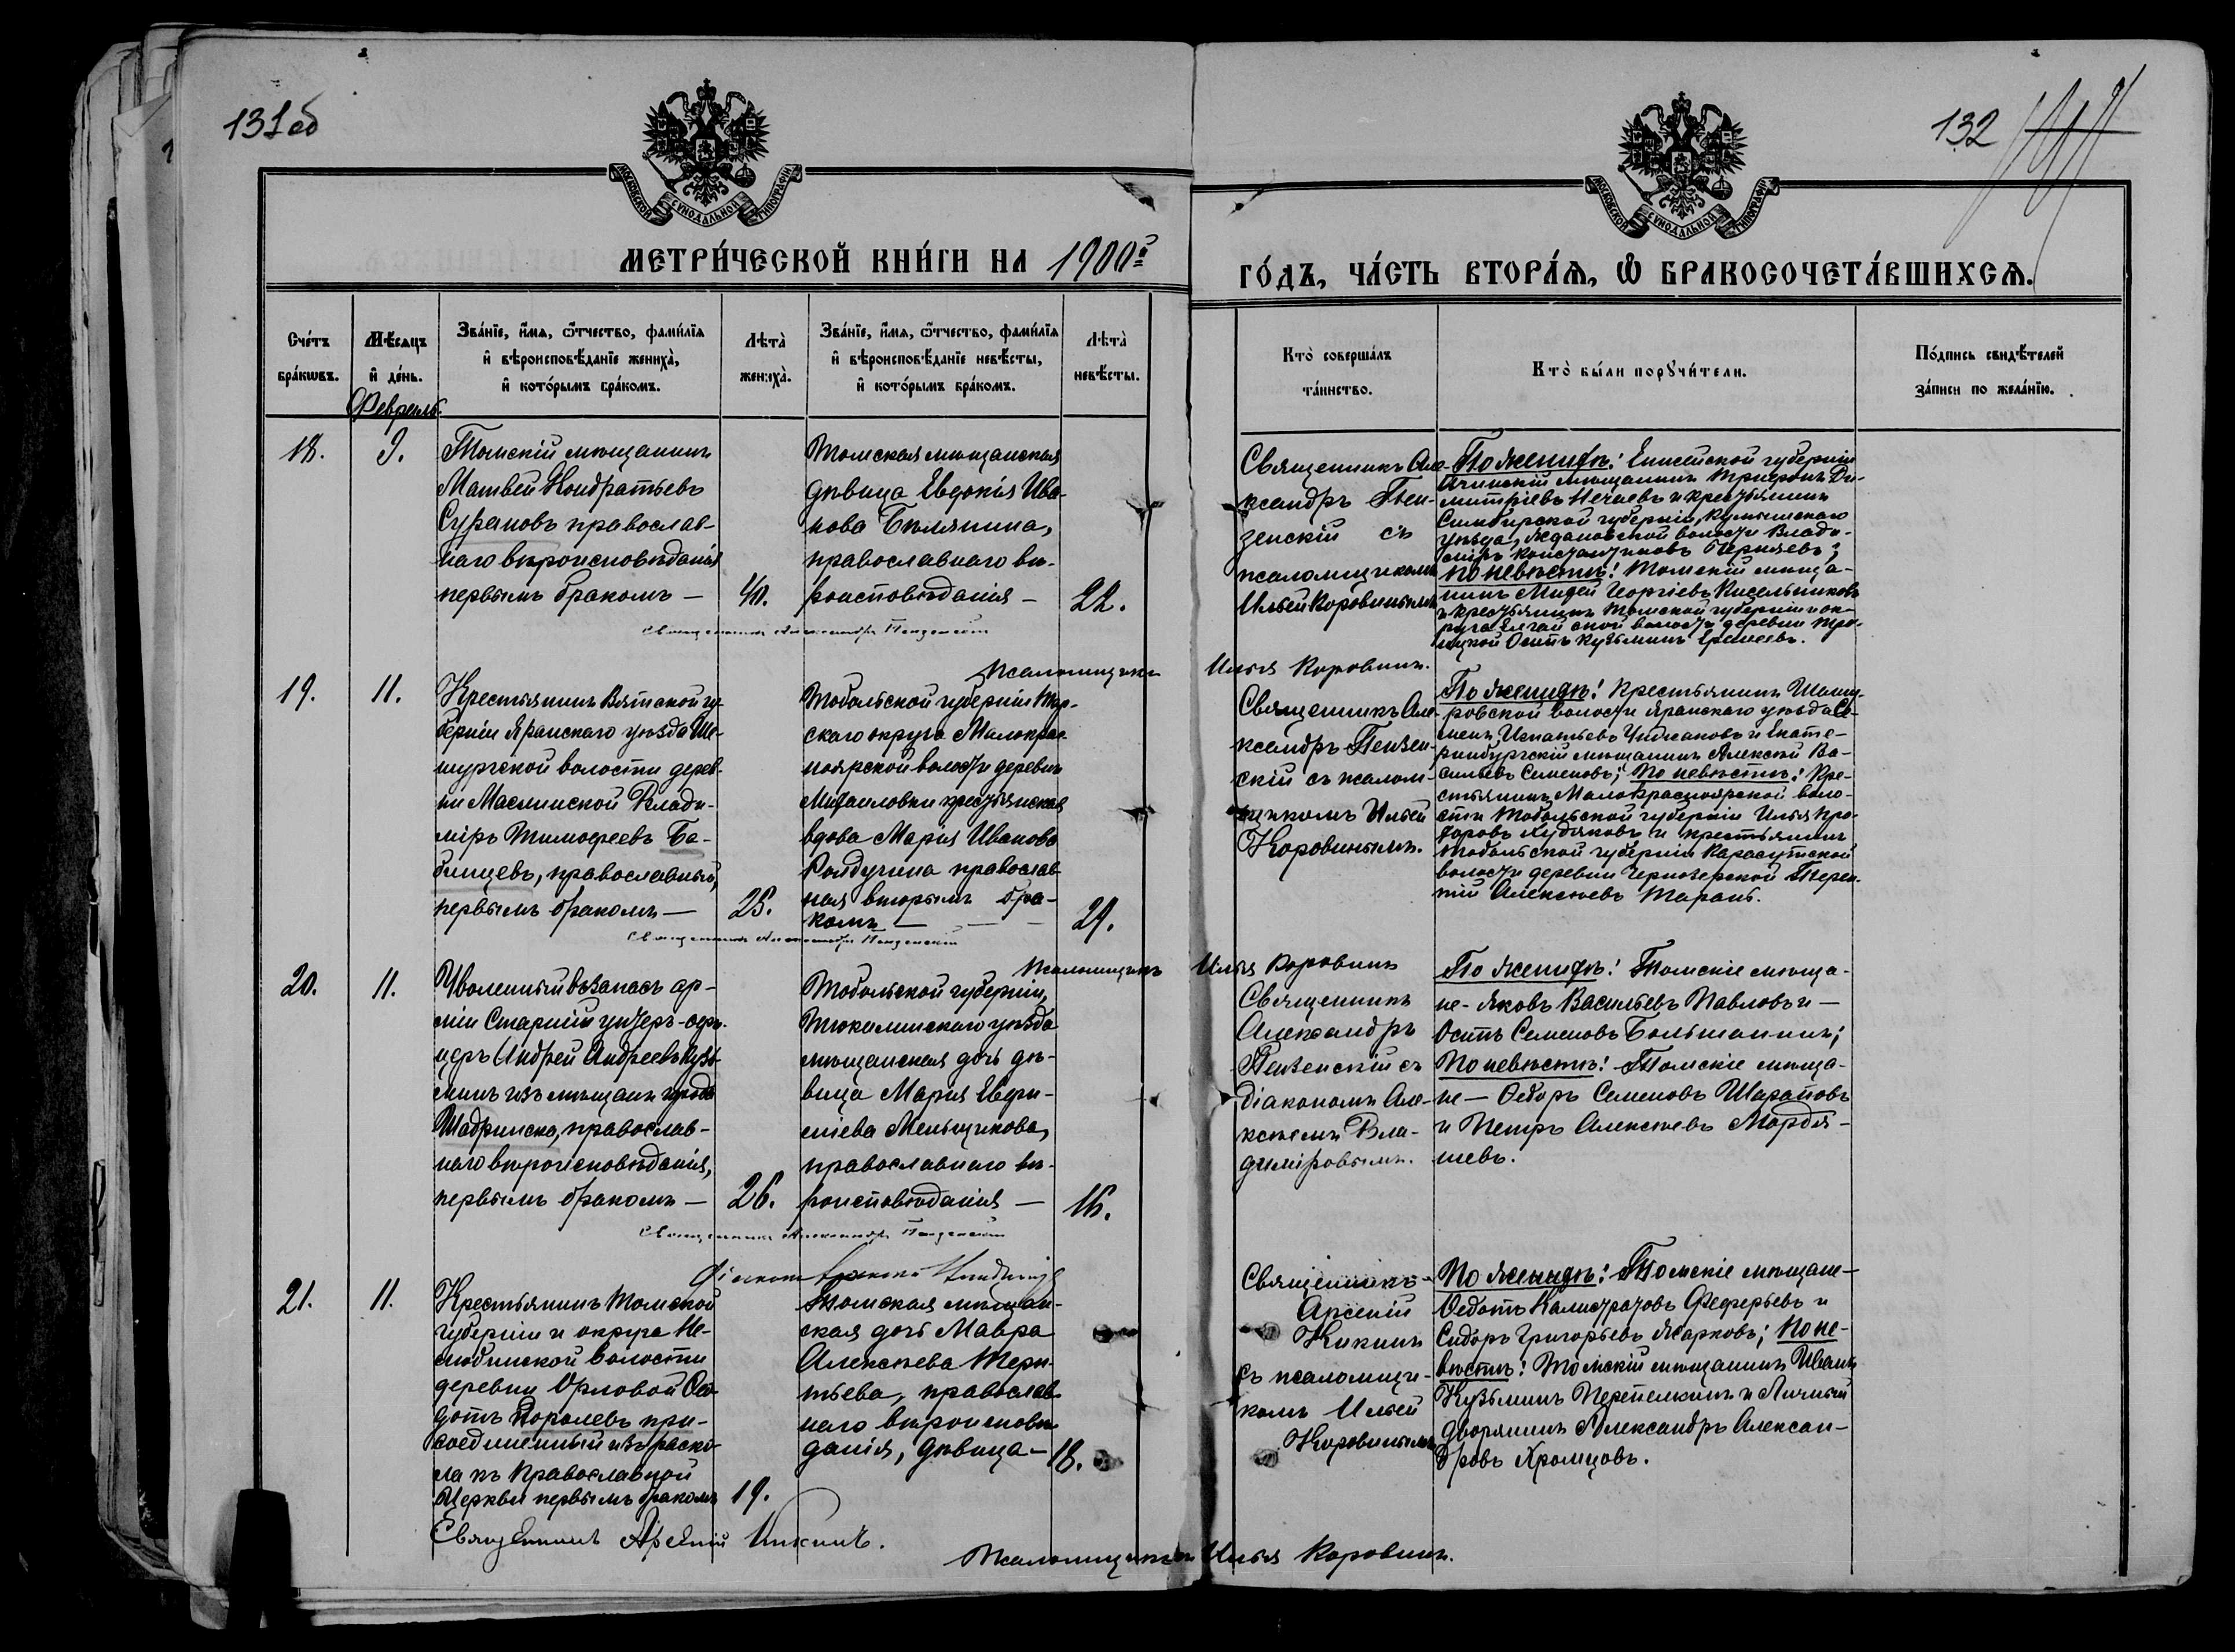 131 об
132
МОСКОВСКОЙ СУНОДАЛЬНОЙ ТИПОГРАФІИ
МОСКОВСКОЙ СУНОДАЛЬНОЙ ТИПОГРАФІИ
МЕТРИ́ЧЕСКОЙ КНИ́ГИ НА 1900й
ГО́ДЪ, ЧА́СТЬ ВТОРА́Ѧ, Ѡ БРАКОСОЧЕТА́ВШИХСѦ.
Сче́тъ
бра́кѡвъ.
Мѣ́сѧцъ
и҆ де́нь.
Февраль
Зва́нїе, и҆́мѧ, ѻ҆́тчество, фами́лїѧ
и҆ вѣроисповѣ́данїе жениха̀,
и҆ кото́рымъ бра́комъ.
Лѣта̀
жениха̀.
Зва́нїе, и҆́мѧ, ѻ҆́тчество, фами́лїѧ
и҆ вѣроисповѣ́данїе невѣ́сты,
и҆ кото́рымъ бра́комъ.
Лѣта̀
невѣ́сты.
Кто̀ соверша́лъ
та́инство.
Кто̀ бы́ли порꙋчи́тели.
По́дпись свидѣ́телей
за́писи по жела́нїю.
18.
9.
Томскій мѣщанинъ
Матвей Кондратьевъ
Сухановъ православ-
наго вѣроисповѣданія
первымъ бракомъ —
40.
Томская мѣщанская
дѣвица Евдокія Ива-
нова Бѣлянина,
православнаго вѣ-
роисповѣданія —
22.
Священникъ Але-
ксандръ Пен-
зенскій съ
псаломщикомъ
Ильей Коровинымъ
По женихѣ: Енисейской губерніи
Ачинскій мѣщанинъ Трифонъ Ди-
митріевъ Нечаевъ и крестьянинъ
Симбирской губерніи, Курмышскаго
уѣзда, Ждановской волости Влади-
міръ Константиновъ Черняевъ;
по невѣстѣ: Томскій мѣща-
нинъ Михей Георгіевъ Кисельниковъ
и крестьянинъ Томской губерніи и ок-
руга Елгайской волости деревни Тро-
ицкой Осипъ Кузьминъ Ермеевъ.
Священникъ Александръ Пензенскій
Псаломщикъ Илья Коровинъ.
19.
11.
Крестьянинъ Вятской гу-
берніи Яранскаго уѣзда Ше-
шургской волости дерев-
ни Маслинской Влади-
міръ Тимофеевъ Ба-
бинцевъ, православный,
первымъ бракомъ —
25.
Тобольской губерніи Тар-
скаго округа Малокрас-
ноярской волости деревни
Михаиловки крестьянская
вдова Марія Иванова
Колдугина православ-
ная вторымъ бра-
комъ — — —
29.
Священникъ Але-
ксандръ Пензен-
скій съ псалом-
щикомъ Ильей
Коровинымъ.
По женихѣ: Крестьянинъ
ровской волости Яранскаго уѣзда Се-
менъ Игнатьевъ Чижановъ и Екате-
ринбургскій мѣщанинъ Алексей Ва-
сильевъ Семеновъ; По невѣстѣ: Кре-
стьянинъ Малокрасноярской воло-
сти Тобольской губерніи Илья Про-
хоровъ Худяковъ и крестьянинъ
Тобольской губерніи Карасукской
волости деревни Черноозерской Терен-
тій Алексеевъ Таранъ.
Священникъ Александръ Пензенскій
Псаломщикъ Илья Коровинъ
20.
11.
Уволенный въ запасъ ар-
міи Старшій унтеръ-офи-
церъ Андрей Андреевъ Кузь-
минъ изъ мѣщанъ города
Шадринска, православ-
наго вѣроисповѣданія,
первымъ бракомъ —
26.
Тобольской губерніи,
Тюкалинскаго уѣзда
мѣщанская дочь дѣ-
вица Марія Евфи-
міева Меньщикова,
православнаго вѣ-
роисповѣданія —
16.
Священникъ
Александръ
Пензенскій съ
діакономъ Але-
ксѣемъ Вла-
диміровымъ.
По женихѣ: Томскіе мѣща-
не - Яковъ Васильевъ Павловъ и —
Осипъ Семеновъ Большанинъ;
По невѣстѣ: Томскіе мѣща-
не — Ѳедоръ Семеновъ Шараповъ
и Петръ Алексѣевъ Мордя-
шевъ.
Священникъ Александръ Пензенскій
Діаконъ
21.
11.
Крестьянинъ Томской
губерніи и округа Не-
любинской волости
деревни Орловой Ѳе-
дотъ Королевъ при-
соединенный изъ раско-
ла къ Православной
Церкви первымъ бракомъ
19.
Томская мѣщан-
ская дочь Мавра
Алексѣева Терн-
тьева, православ-
наго вѣроисповѣ-
данія, дѣвица —
18.
Священникъ
Арсеній
Кикинъ
съ псаломщи-
комъ Ильей
Коровинымъ
По женихѣ: Томскіе мѣщане —
Ѳедотъ Калистратовъ Феферьевъ и
Сидоръ Григорьевъ Жарковъ; По не-
вѣстѣ: Томскій мѣщанинъ Иванъ
Кузьминъ Перепелкинъ и Личный
дворянинъ Александръ Алексан-
дровъ Хромцовъ.
Священникъ Арсеній Кикинъ.
Псаломщикъ Илья Коровинъ.